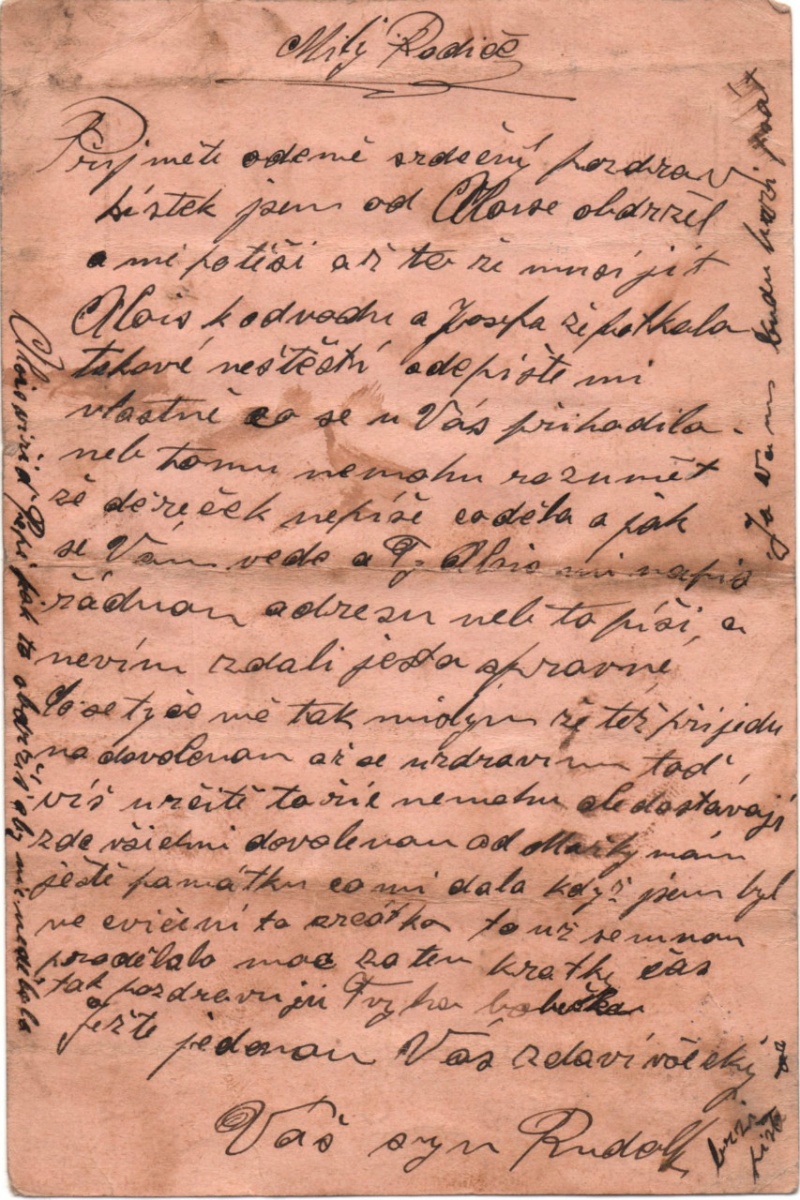 Milý Rodiče
Přijměte odemě srdečný pozdrav
Lístek jsem od Aloise obdržel
a mi potěši až to že musí jít
Alois k odvodu a Josefa že potkalo
takové neštěstí odepište mi
vlastně co se u Vás přihodilo
neb tomu nemohu rozumět
že děreček nepíše co děla a jak
se Vám vede a Ty Alois mi napiš
řádnou adresu neb to píši a
nevím zdali je to spravné
Co se tyče mě tak midym že též přijedu
na dovolenou až se uzdravim toď
víš určitě to říc nemohu ale dostávají
zde všichni dovolenou od Mařky mám
ještě památku co mi dala když jsem byl
ve cvičení to zrcátko to už semnou
prodělalo moc za ten kratky čas
tak pozdravuj ji
Ješte jedenou Vás zdaví všecky
Váš syn Rudolf
brzi pište
Ja Vam budu brzi psát